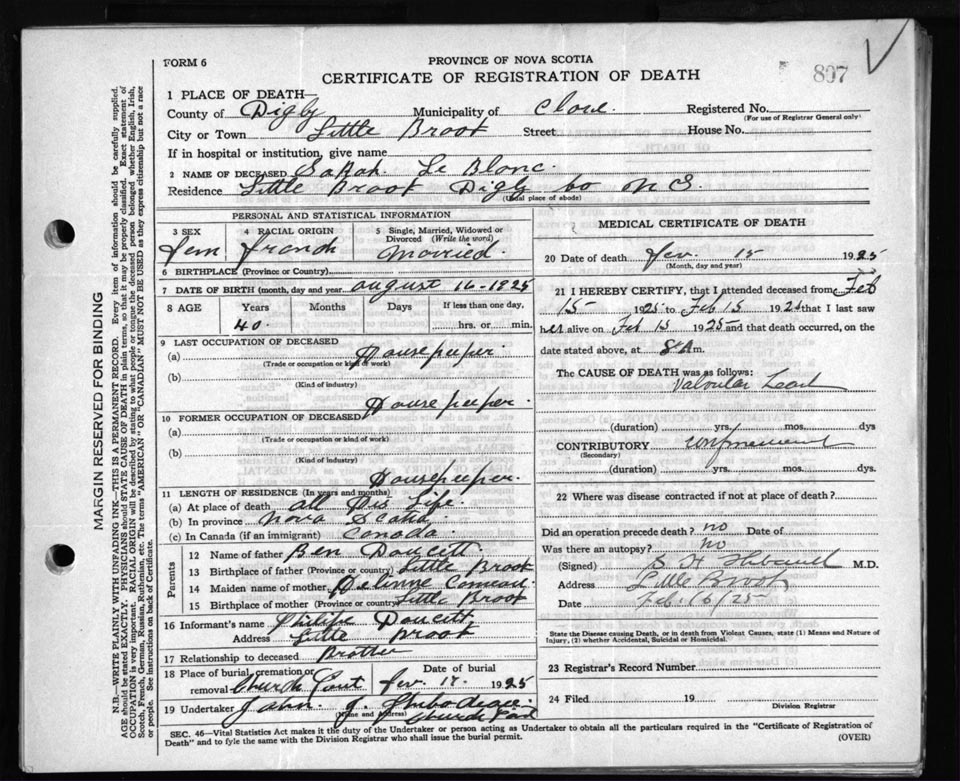 FORM 6
PROVINCE OF NOVA SCOTIA
CERTIFICATE OF REGISTRATION OF DEATH
807
1 PLACE OF DEATH—
County of Digby Municipality of Clare. Registered No.
(For use of Registrar General only)
City or Town Little Brook Street House No.
If in hospital or institution, give name
2 NAME OF DECEASED Sarah Le Blanc.
Residence Little Brook Digby Co N S.
(Usual place of abode)
PERSONAL AND STATISTICAL INFORMATION
3 SEX 4 RACIAL ORIGIN 5 Single, Married, Widowed or Divorced (Write the word)
Fem french Married.
6 BIRTHPLACE (Province or Country)
7 DATE OF BIRTH (month, day and year) August 16-1925
8 AGE Years Months Days If less than one day,
40. hrs. or min.
9 LAST OCCUPATION OF DECEASED
(a) Housekeeper.
(Trade or occupation or kind of work)
(b)
(Kind of industry)
Housekeeper.
10 FORMER OCCUPATION OF DECEASED
(a)
(Trade or occupation or kind of work)
(b)
(Kind of industry)
Housekeeper.
11 LENGTH OF RESIDENCE (In years and months)
(a) At place of death all His Life.
(b) In province Nova Scotia
(c) In Canada (if an immigrant) Canada.
Parents
12 Name of father Ben Doucett.
13 Birthplace of father (Province or country) Little Brook
14 Maiden name of mother Comeau.
15 Birthplace of mother (Province or country) Little Brook
16 Informant's name Philipe Doucett
Address Little Brook
17 Relationship to deceased Brother
18 Place of burial, cremation or removal Date of burial
Church Point fev. 17. 1925
19 Undertaker John J. Thibodeau
(Name and address) Church Point
SEC. 46—Vital Statistics Act makes it the duty of the Undertaker or person acting as Undertaker to obtain all the particulars required in the "Certificate of Registration of
Death" and to fyle the same with the Division Registrar who shall issue the burial permit.
(OVER)
MEDICAL CERTIFICATE OF DEATH
20 Date of death Fev. 15 1925
(Month, day and year)
21 I HEREBY CERTIFY, that I attended deceased from Feb
15 1925 to Feb 15 1925 that I last saw
her alive on Feb 15 1925 and that death occurred, on
date stated above, at 8 A m.
The CAUSE OF DEATH was as follows:
Valvular Heart
(duration) yrs. mos. dys.
CONTRIBUTORY
(Secondary)
(duration) yrs. mos. dys.
22 Where was disease contracted if not at place of death?
Did an operation precede death? no Date of
Was there an autopsy? no
(Signed) M.D.
Address Little Brook
Date Feb. 16/25
State the Disease causing Death, or in death from Violent Causes, state (1) Means and Nature of
Injury, (2) whether Accidental, Suicidal or Homicidal.
23 Registrar's Record Number
24 Filed 19
Division Registrar
MARGIN RESERVED FOR BINDING
N.B.—WRITE PLAINLY WITH UNFADING INK—THIS IS A PERMANENT RECORD. Every item of information should be carefully supplied.
AGE should be stated EXACTLY. PHYSICIANS should STATE CAUSE OF DEATH in plain terms, so that it may be properly classified. Exact statement of
OCCUPATION is very important. RACIAL ORIGIN will be described by stating to what people or tongue the deceased person belonged whether English, Irish,
Scotch, French, German, Russian, Ruthenian, etc. The terms "AMERICAN" OR "CANADIAN" MUST NOT BE USED as they express citizenship but not a race
or people. See instructions on back of Certificate.